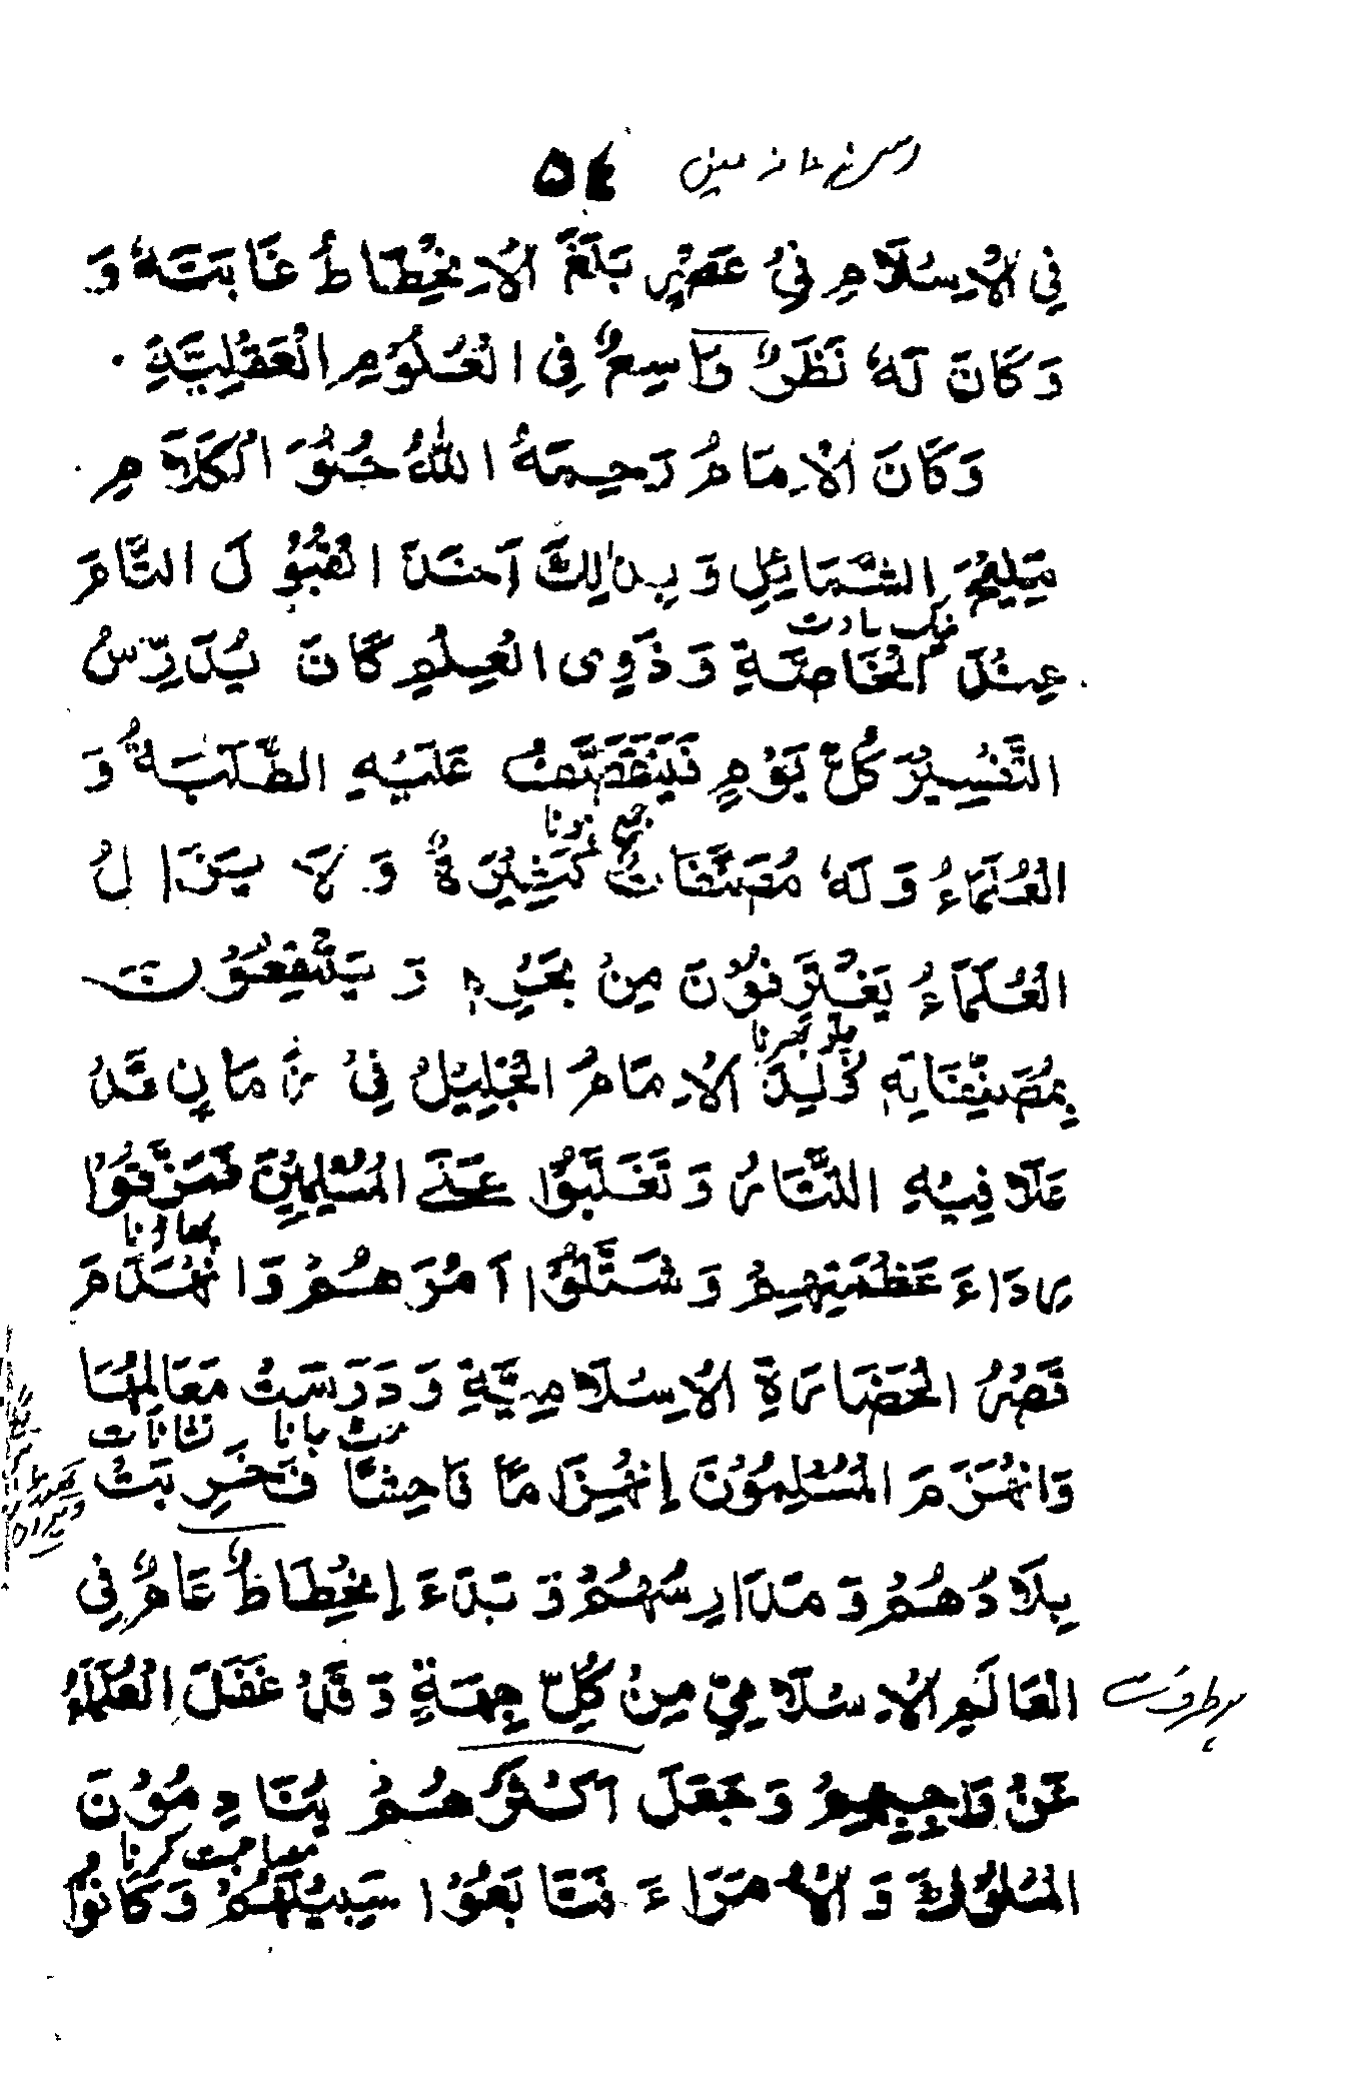 اس زمانہ میں ٥٤
فِي الْاِسْلَامِ فِيْ عَصْرٍ بَلَغَ الْاِنْحِطَاطُ غَايَتَهٗ وَ
وَكَانَ لَهٗ نَظَرٌ وَاسِعٌ فِي الْعُلُوْمِ الْعَقْلِيَّةِ ۔
وَكَانَ الْاِمَامُ رَحِمَهُ اللّٰهُ حُلْوَ الْكَلَامِ
مَلِيْحَ الشَّمَائِلِ وَبِذٰلِكَ اَخَذَ الْقُبُوْلَ التَّامَّ
نیک عادت
عِنْدَ الْخَاصَّةِ وَذَوِى الْعِلْمِ كَانَ يُدَرِّسُ
التَّفْسِيْرَ كُلَّ يَوْمٍ فَيَتَقَصَّفُ عَلَيْهِ الطَّلَبَةُ وَ
جمع ہونا
الْعُلَمَاءُ وَلَهٗ مُصَنَّفَاتٌ كَثِيْرَةٌ وَلَا يَزَالُ
الْعُلَمَاءُ يَغْتَرِفُوْنَ مِنْ بَحْرِهٖ وَيَنْتَفِعُوْنَ
چلو بھرنا
بِمُصَنَّفَاتِهٖ وُلِدَ الْاِمَامُ الْجَلِيْلُ فِيْ زَمَانٍ قَدْ
عَلَا فِيْهِ التَّتَارُ وَتَغَلَّبُوْا عَلَى الْمُسْلِمِيْنَ فَمَزَّقُوْا
پھاڑنا
رِدَاءَ عَظْمَتِهِمْ وَشَتَّتُوْا اَمْرَهُمْ وَانْهَدَمَ
قَصْرُ الْحَضَارَةِ الْاِسْلَامِيَّةِ وَدَرَسَتْ مَعَالِمُهَا
مٹ جانا نشانات
وَانْهَزَمَ الْمُسْلِمُوْنَ اِنْهِزَامًا فَاحِشًا فَخَرِبَتْ
بِلَادُهُمْ وَمَدَارِسُهُمْ وَبَدَءَ اِنْحِطَاطٌ عَامٌّ فِي
الْعَالَمِ الْاِسْلَامِيِّ مِنْ كُلِّ جِهَةٍ وَقَدْ غَفَلَ الْعُلَمَاءُ ہر طرف سے
عَنْ وَاجِبِهِمْ وَجَعَلَ اَكْثَرُهُمْ يُنَادِمُوْنَ
مصاحبت کرنا
الْمُلُوْكَ وَالْاُمَرَاءَ فَتَتَابَعُوْا سَبِيْلَهُمْ وَكَانُوْا